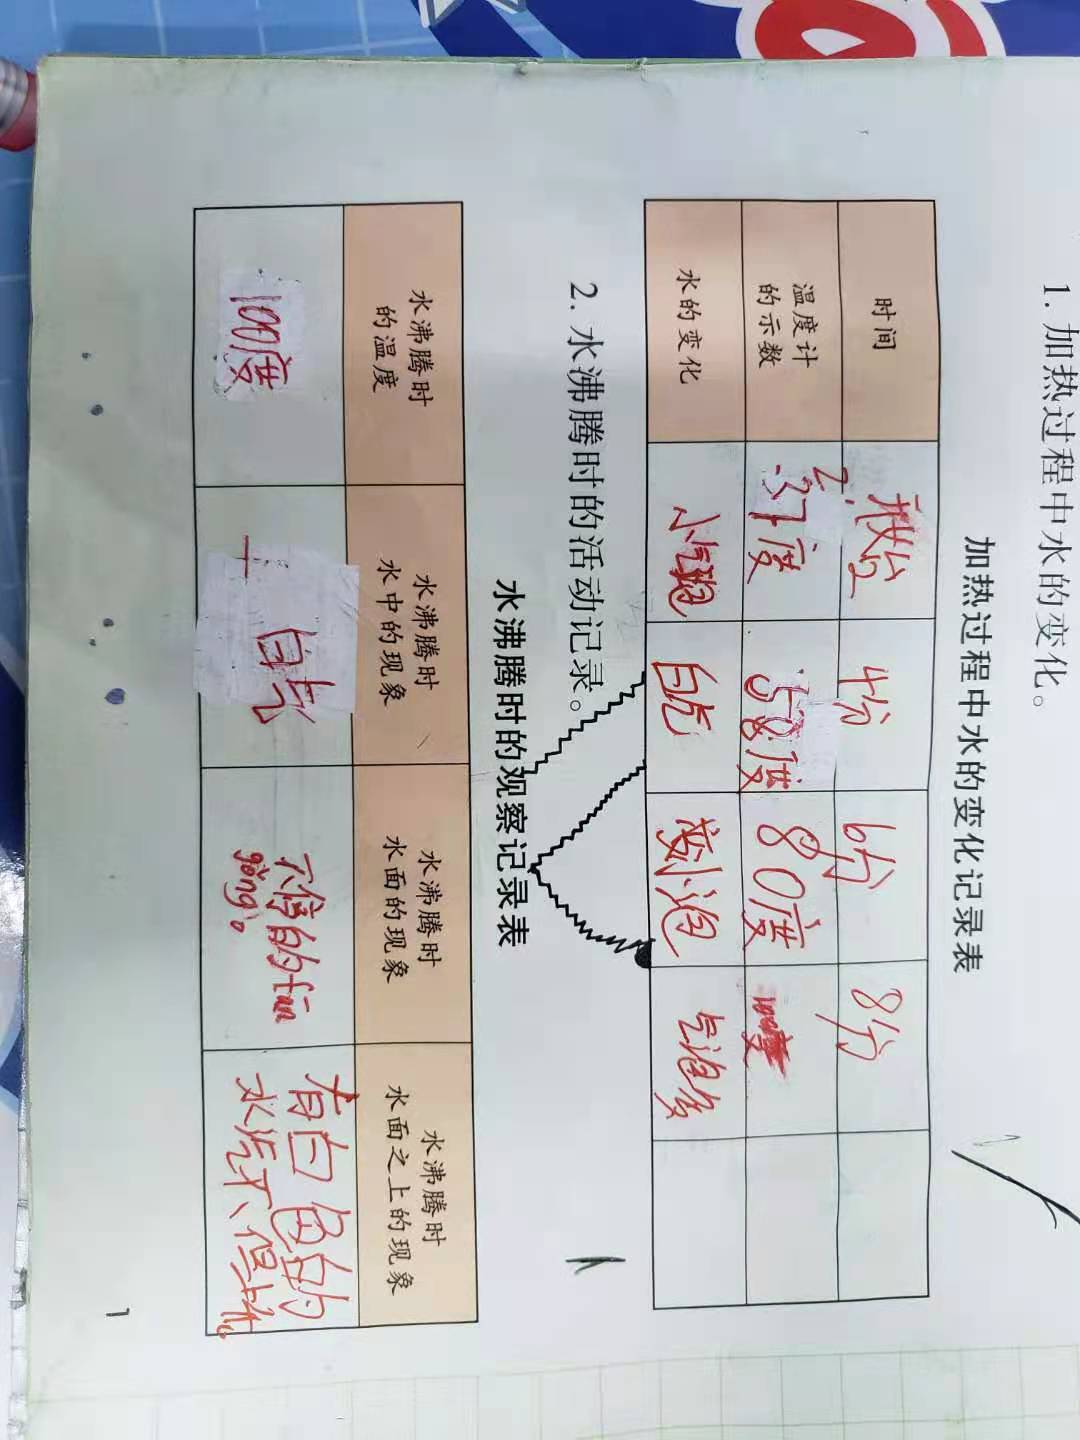 1. 加热过程中水的变化。
加热过程中水的变化记录表
时间 4分 6分 8分
温度计的示数 37度 58度 80度 100度
水的变化 小气泡 白气 小泡 气泡多
2. 水沸腾时的活动记录。
水沸腾时的观察记录表
水沸腾时 水沸腾时 水沸腾时 水沸腾时
的温度 水中的现象 水面的现象 水面之上的现象
100度 白气 不停的fān gǒng。 有白色的水汽不停上升。
1